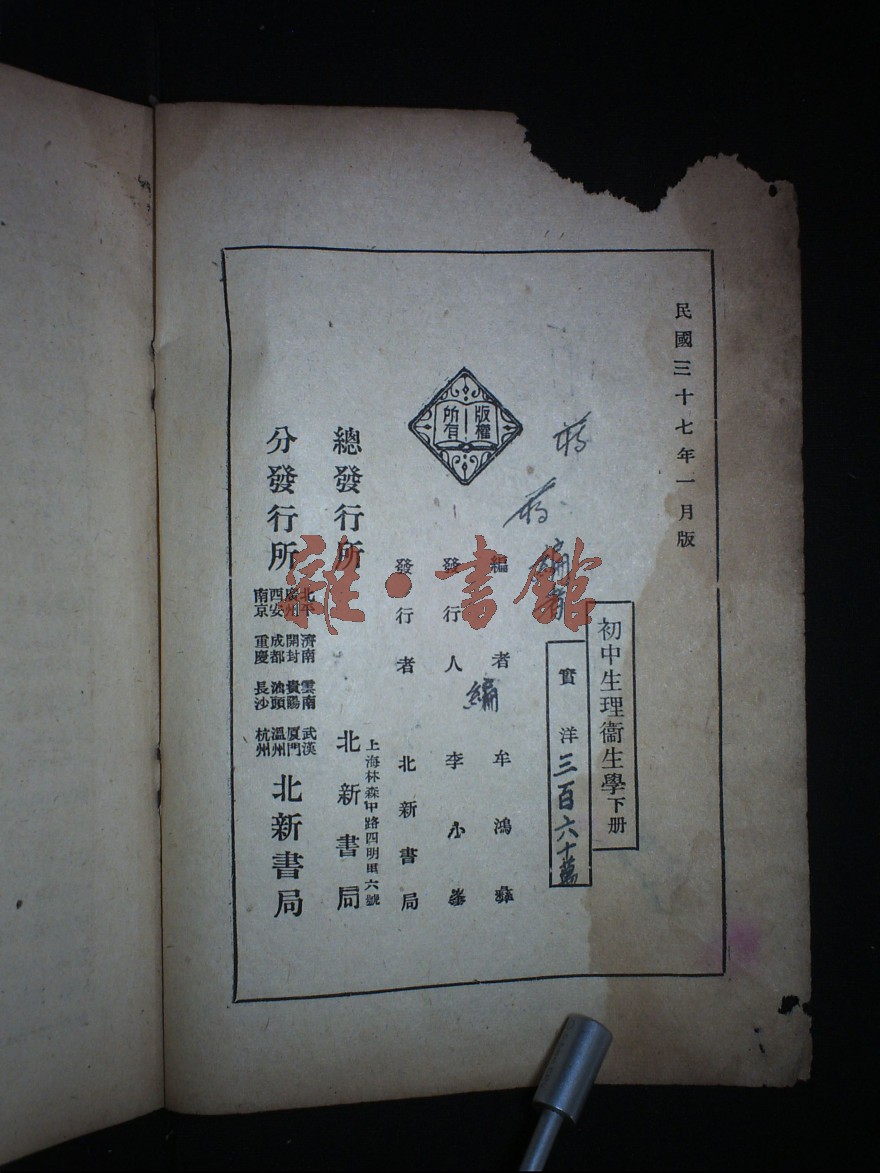 民國三十七年一月版
初中生理衞生學下册
實洋三百六十萬
蔣
蔣編者
編者 牟鴻彝
編
發行人 李小峯
發行者 北新書局
版權所有
上海林森中路四明里六號
總發行所 北新書局
分發行所
北平 濟南 雲南 武漢
廣州 開封 貴陽 厦門
西安 成都 汕頭 溫州
南京 重慶 長沙 杭州
北新書局
雜·書館